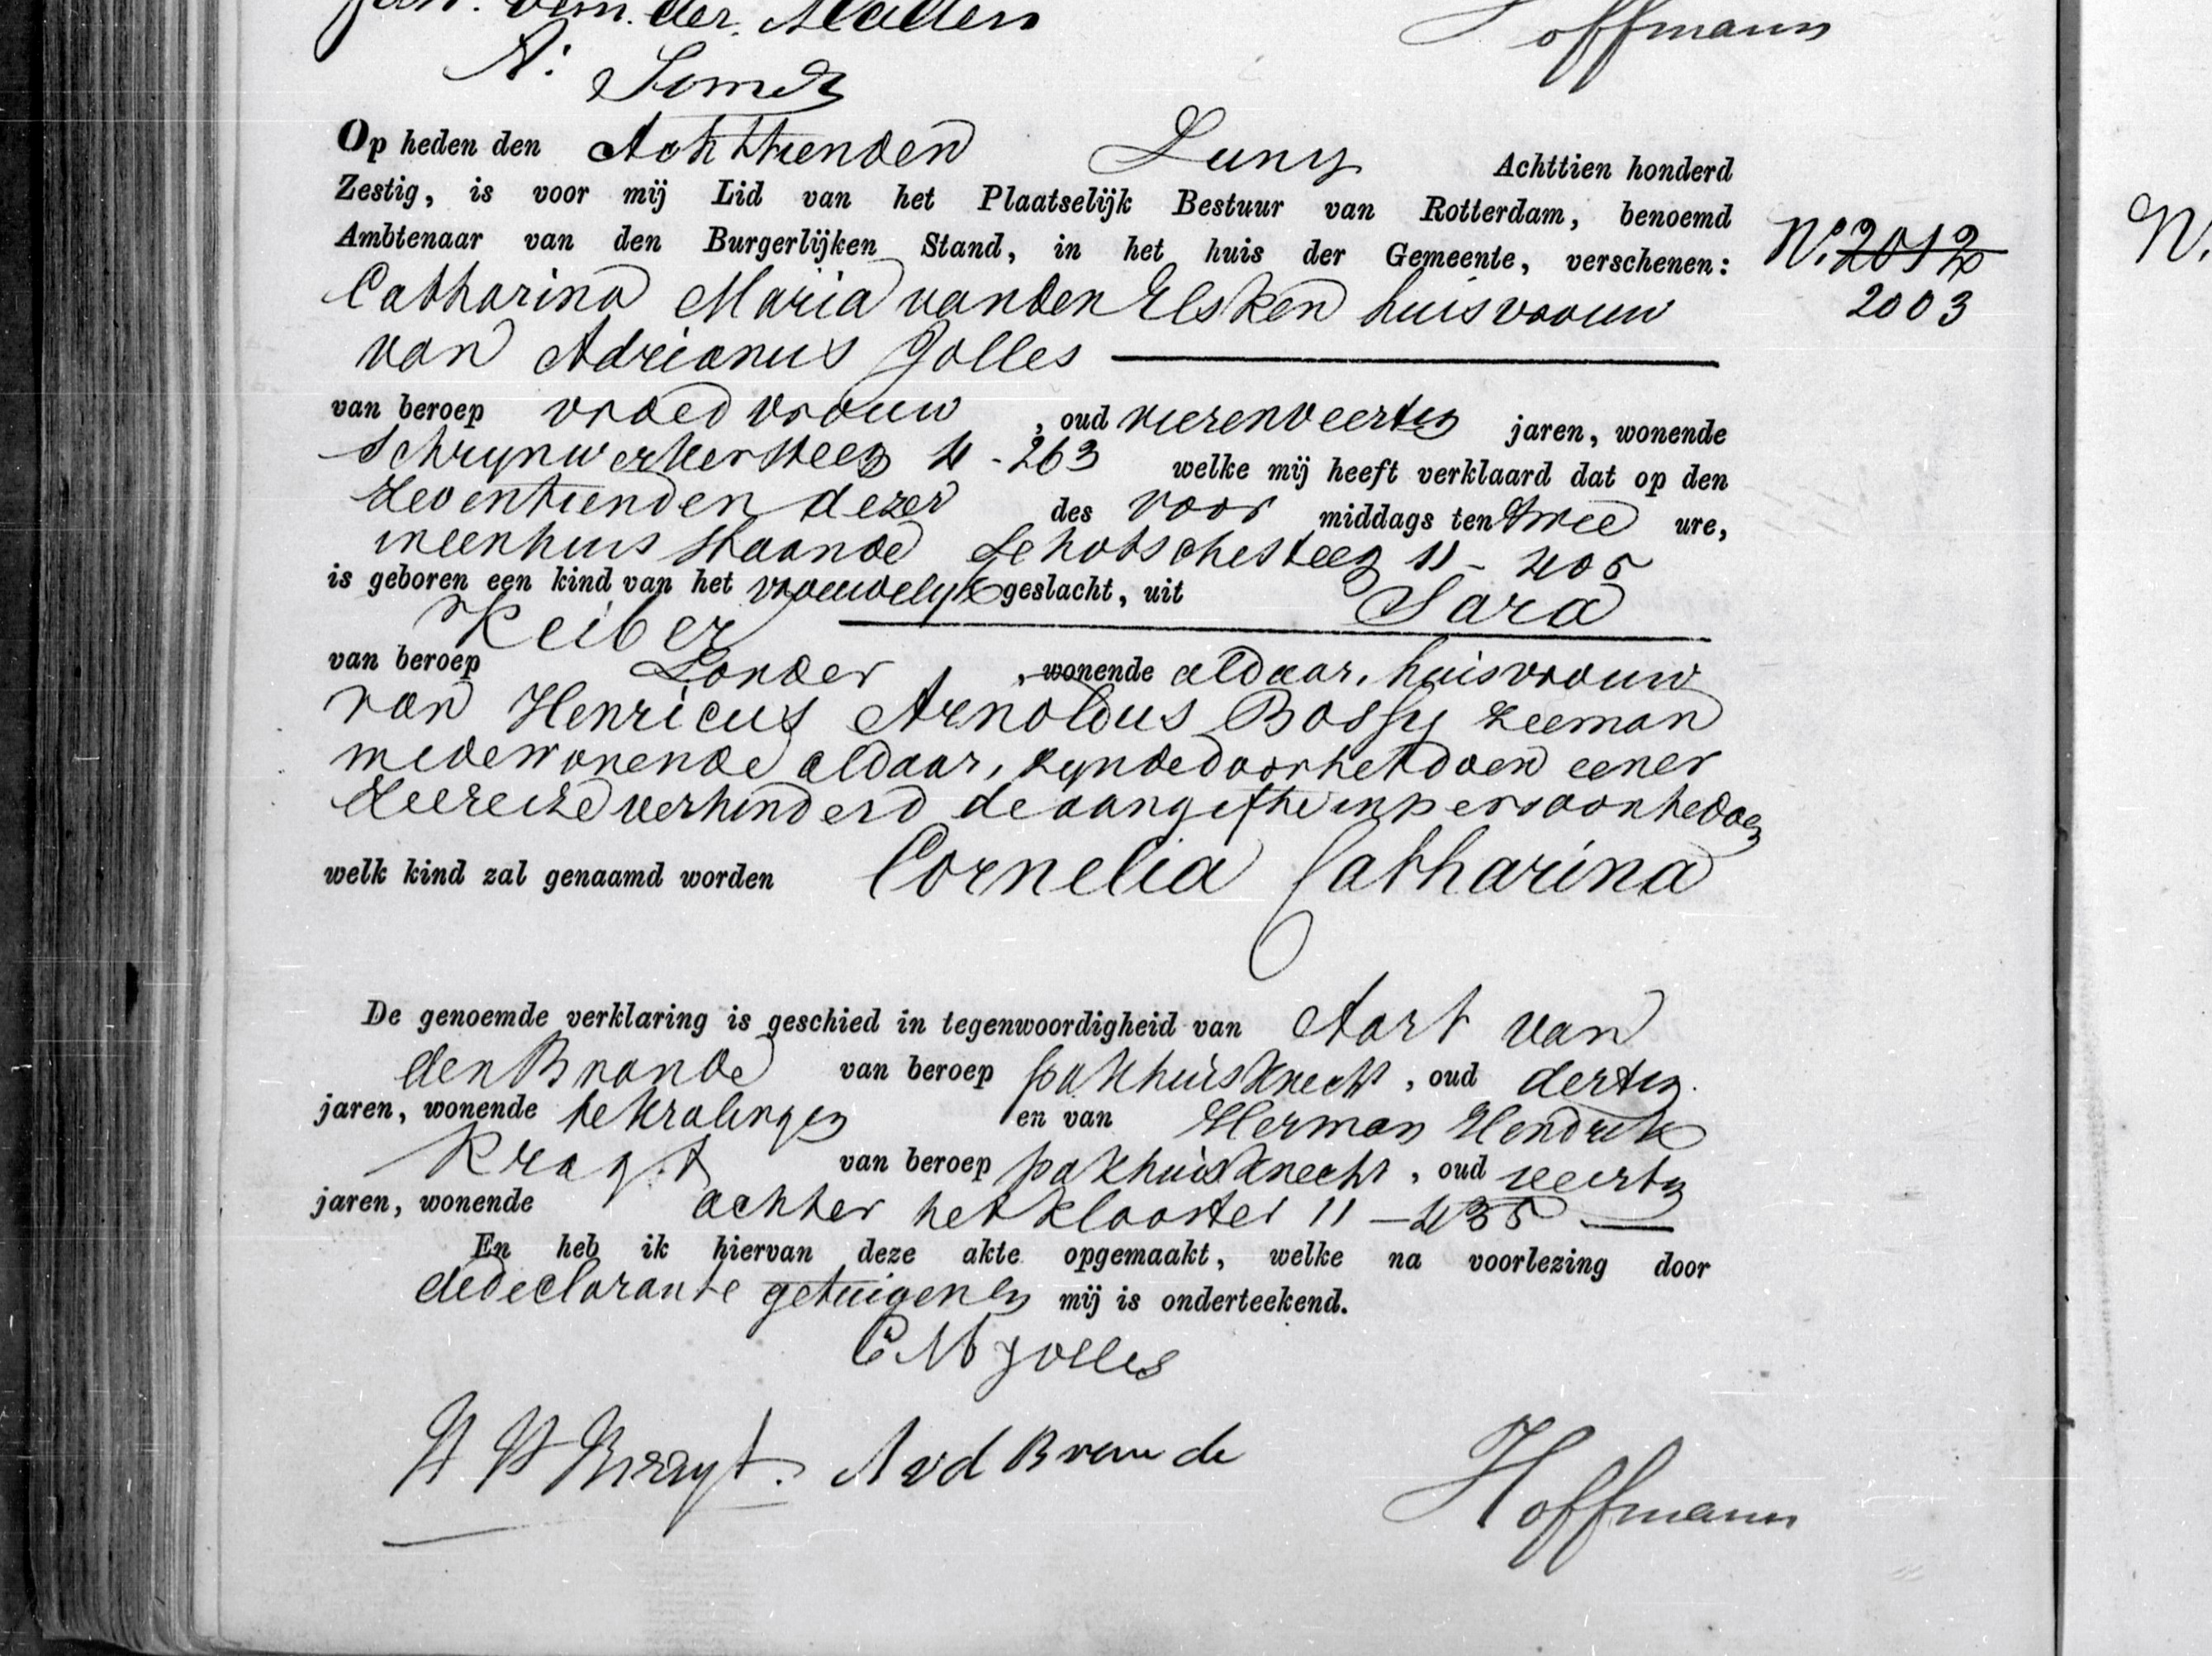 Jan. van. der. Madden
N: Somer
Hoffmann
Op heden den Achttienden Juny Achttien honderd
Zestig, is voor mij Lid van het Plaatselijk Bestuur van Rotterdam, benoemd
Ambtenaar van den Burgerlijken Stand, in het huis der Gemeente, verschenen:
N.o 2012
2003
N.
Catharina Maria vanden Elsken huisvrouw
van Adrianus Jolles
van beroep vroedvrouw, oud vierenveertig jaren, wonende
Schrynwerkersteeg 4-263 welke mij heeft verklaard dat op den
Zeventienden dezer des voor middags ten twee ure,
ineenhuis staande Schotschesteeg 11-405
is geboren een kind van het vrouwelyk geslacht, uit Sara
Keiber
van beroep Zonder, wonende aldaar, huisvrouw
van Henricus Arnoldus Bossy zeeman
medewonende aldaar, zyndedoorhetdoen eener
Zeereize verhinderd deaangifte inpersoontedoen
welk kind zal genaamd worden Cornelia Catharina
De genoemde verklaring is geschied in tegenwoordigheid van Aart van
den Brande van beroep pakhuisknecht, oud dertig
jaren, wonende te Kralingen en van Herman Hendrik
Kragt van beroep pakhuisknecht, oud veertig
jaren, wonende achter het klooster 11-435
En heb ik hiervan deze akte opgemaakt, welke na voorlezing door
dedeclarante getuigen en mij is onderteekend.
C M Jolles
H H Kragt. A vd Brande
Hoffmann